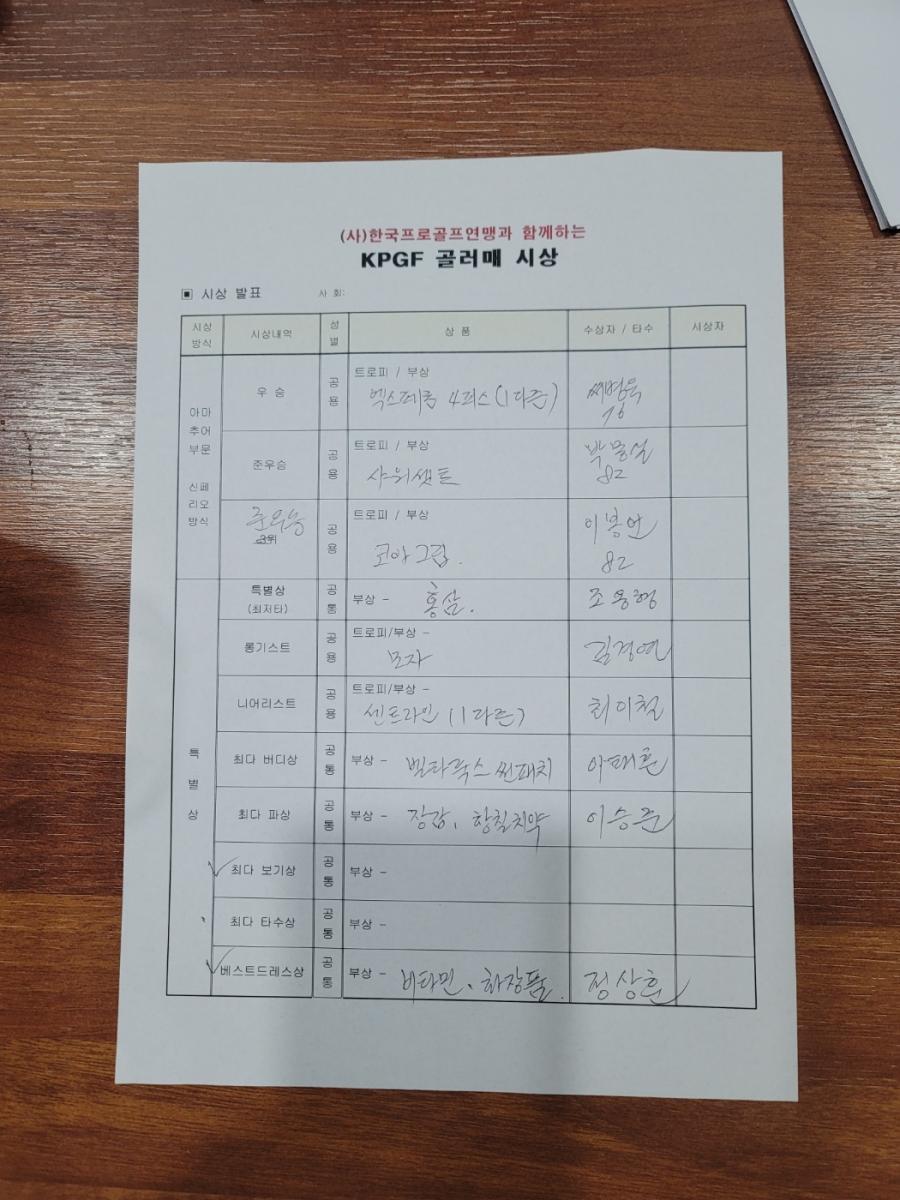 (사)한국프로골프연맹과 함께하는
KPGF 골러매 시상
▣ 시상 발표 사 회:
시상 방식 시상내역 성별 상 품 수상자 / 타수 시상자
아마추어 부문 신페리오 방식
우 승 공용 트로피 / 부상 4피스(1다즌) 76
준우승 공용 트로피 / 부상 샤워셋트 82
3위 공용 트로피 / 부상 코아그립. 이봉언 82
특별상
특별상 (최저타) 공통 부상 - 홍삼. 조용형
롱기스트 공용 트로피/부상 - 모자 김경연
니어리스트 공용 트로피/부상 - 센트라인 (1다즌) 최이철
최다 버디상 공통 부상 - 벨라룩스 썬패치
최다 파상 공통 부상 - 장갑, 항칠치약 이승준
최다 보기상 공통 부상 -
최다 타수상 공통 부상 -
베스트드레스상 공통 부상 - 비타민, 화장품. 정상훈